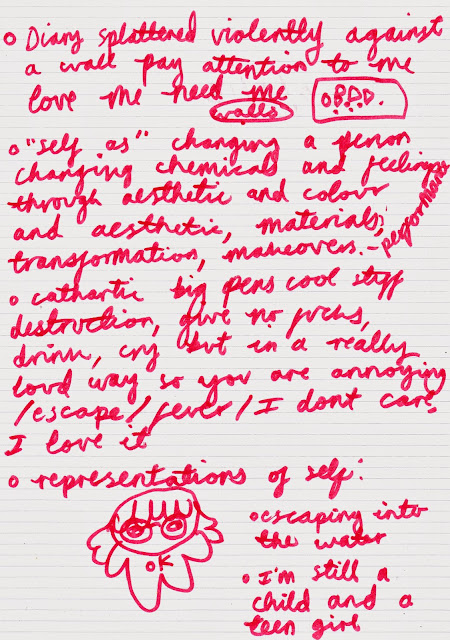 Diary splattered violently against
a wall pay attention to me
love me need me
walls
"self as" changing a person
changing chemicals and feelings
through aesthetic and colour
and aesthetic, materials,
transformation, makeovers. - performers
o cathartic big pens cool stuff
destruction, give no fucks,
drink, cry but in a really
loud way so you are annoying
/escape/fever/I dont care
I love it
o representations of self:
OK
o escaping into
the water
o I'm still a
child and a
teen girl